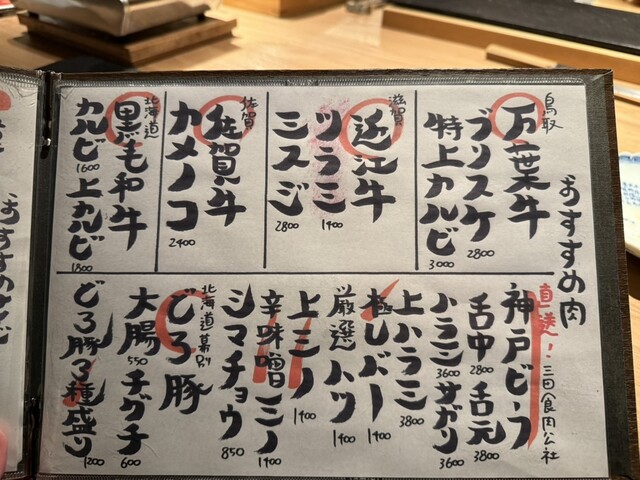 おすすめ肉
鳥取
万葉牛
ブリスケ 2800
特上カルビ 3000
滋賀
近江牛
ツラミ 1400
ミスジ 2800
佐賀
佐賀牛
カメノコ 2400
北海道
黒毛和牛
カルビ 1600 上カルビ 1800
直送！三田食肉公社
神戸ビーフ
舌中 2800 舌元 3800
ハラミ 3600 サガリ 3600
上ハラミ 3800
極レバー 1400
厳選ハツ 1400
上ミノ 1400
辛味噌ミノ 1400
シマチョウ 850
北海道幕別
どろ豚
大腸 550 チグチ 600
どろ豚3種盛り 1200